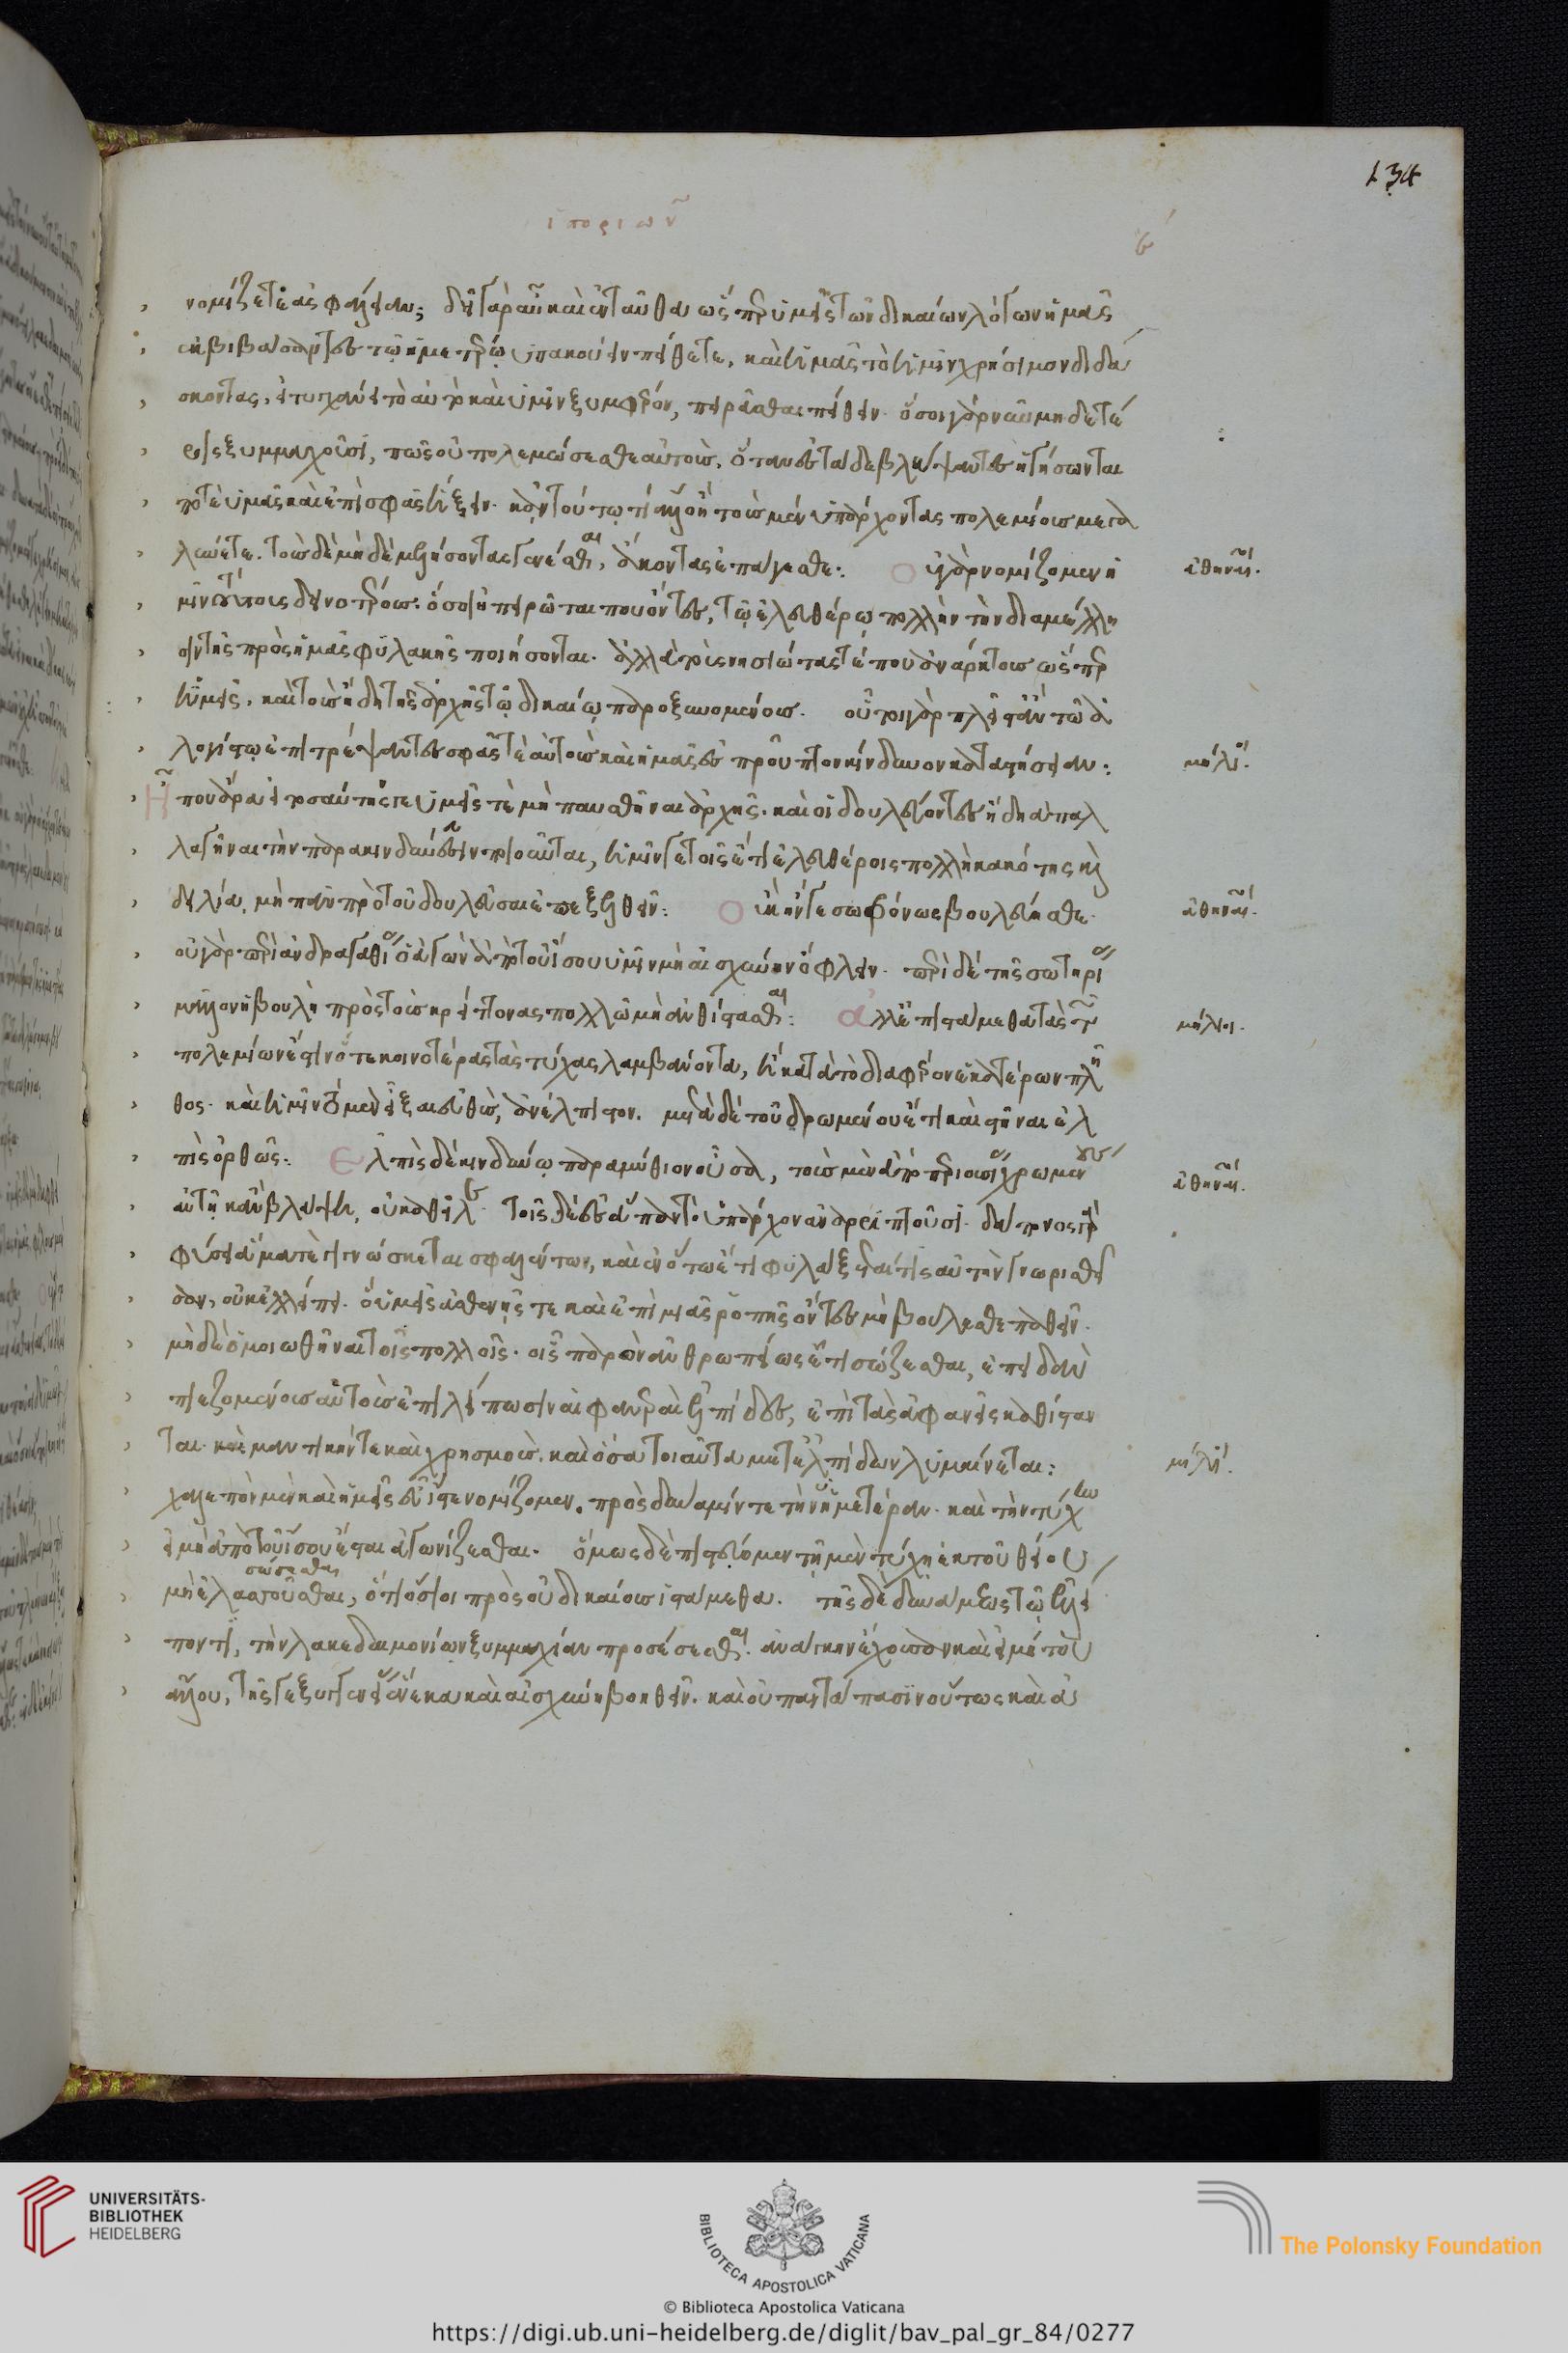 ἱστοριῶν
134
νομίζετε ἀσφάλειαν; δεῖ γὰρ αὖ καὶ ἐνταῦθα ὥσπερ ὑμεῖς τῶν δικαίων λόγων ἡμᾶς
ἐκβιβάσαντες τῷ ἡμετέρῳ ὑπακούειν πείθετε, καὶ ἡμᾶς τὸ ἡμῖν χρήσιμον διδά
σκοντας, εἰ τυγχάνει τὸ αὐτὸ καὶ ὑμῖν ξυμφέρον, πειρᾶσθαι πείθειν. ὅσοι γὰρ νῦν μηδετέ
ροις ξυμμαχοῦσι, πῶς οὐ πολεμώσεσθε αὐτοὺς, ὅταν ἐς τάδε βλέψαντες ἡγήσωνται
ποτὲ ὑμᾶς καὶ ἐπὶ σφᾶς ἥξειν. κἀν τούτῳ τί ἄλλο ἢ τοὺς μὲν ὑπάρχοντας πολεμίους μεγα
λύνετε. τοὺς δὲ μηδὲ μελλήσοντας γενέσθαι, ἄκοντας ἐπάγεσθε: οὐ γὰρ νομίζομεν ἡ
μῖν τούτους δεινοτέρους. ὅσοι ἠπειρῶται που ὄντες, τῷ ἐλευθέρῳ πολλὴν τὴν διαμέλλη
σιν τῆς πρὸς ἡμᾶς φυλακῆς ποιήσονται. ἀλλὰ τοὺς νησιώτας τέ που ἀνάρκτους ὥσπερ
ὑμεῖς. καὶ τοὺς ἤδη τῆς ἀρχῆς τῷ δικαίῳ παροξυνομένους. οὗτοι γὰρ πλεῖστ' ἂν τῶ ἀ
λογίστῳ ἐπιτρέψαντες σφᾶς τε αὐτοὺς καὶ ἡμᾶς ἐς προῦπτον κίνδυνον καταστήσειαν:
Ἦ που ἄρα εἰ τοσαύτην γε ὑμεῖς τὲ μὴ παυσθῆναι ἀρχῆς. καὶ οἱ δουλεύοντες ἤδη ἀπαλ
λαγῆναι τὴν παρακινδύνευσιν ποιοῦνται, ἡμῖν γε τοῖς ἔτι ἐλευθέροις πολλὴ κακότης καὶ
δειλία, μὴ πᾶν πρὸ τοῦ δουλεῦσαι ἐπεξελθεῖν: οὐκ ἤν γε σωφρόνως βουλεύησθε.
οὐ γὰρ περὶ ἀνδραγαθίας ὁ ἀγὼν ἀπὸ τοῦ ἴσου ὑμῖν μὴ αἰσχύνην ὀφλεῖν. περὶ δὲ τῆς σωτηρίας
μᾶλλον ἡ βουλὴ πρὸς τοὺς κρείττονας πολλῶ μὴ ἀνθίστασθαι: ἀλλ' ἐπιστάμεθα τὰς τῶν
πολεμίων ἔστιν ὅτε κοινοτέρας τὰς τύχας λαμβάνοντα, ἢ κατὰ τὸ διαφέρον ἑκατέρων πλῆ
θος. καὶ ἡμῖν τὸ μὲν εἶξαι εὐθὺς, ἀνέλπιστον. μετὰ δὲ τοῦ δρωμένου ἔτι καὶ στῆναι ἐλ
πὶς ὀρθῶς: Ἐλπὶς δὲ κινδύνῳ παραμύθιον οὖσα, τοὺς μὲν ἀπὸ περιουσίας χρωμένους
αὐτῇ κἂν βλάψῃ, οὐ καθεῖλε. τοῖς δὲ ἐς ἅπαν τὸ ὑπάρχον ἀναρριπτοῦσι. δάπανος γὰρ
φύσει ἅμα τε γιγνώσκεται σφαλέντων, καὶ ἐν ὅτω ἔτι φυλάξεταί τις αὐτὴν γνωρισθεῖ
σαν, οὐκ ἐλλείπει. ὃ ὑμεῖς ἀσθενεῖς τε καὶ ἐπὶ μιᾶς ῥοπῆς ὄντες μὴ βούλεσθε παθεῖν.
μηδὲ ὁμοιωθῆναι τοῖς πολλοῖς. οἷς παρὸν ἀνθρωπείως ἔτι σώζεσθαι, ἐπειδὰν
πιεζομένους αὐτοὺς ἐπιλείπωσιν αἱ φανεραὶ ἐλπίδες, ἐπὶ τὰς ἀφανεῖς καθίσταν
ται. καὶ μαντικήν τε καὶ χρησμοὺς. καὶ ὅσα τοιαῦτα μετ' ἐλπίδων λυμαίνεται:
χαλεπὸν μὲν καὶ ἡμεῖς εὖ ἴστε νομίζομεν. πρὸς δύναμίν τε τὴν ὑμετέραν. καὶ τὴν τύχην
εἰ μὴ ἀπὸ τοῦ ἴσου ἔσται ἀγωνίζεσθαι. ὅμως δὲ πιστεύομεν τῇ μὲν τύχῃ ἐκ τοῦ θείου
μὴ ἐλασσοῦσθαι, ὅτι ὅσιοι πρὸς οὐ δικαίους ἱστάμεθα. τῆς δὲ δυνάμεως τῶ ἐλλεί
ποντι, τὴν λακεδαιμονίων ξυμμαχίαν προσέσεσθαι. ἀνάγκην ἔχουσαν καὶ εἰ μή του
ἄλλου, τῆς γε ξυγγενείας ἕνεκα καὶ αἰσχύνῃ βοηθεῖν. καὶ οὐ παντάπασιν οὕτως καὶ ἀ
ἀθηναῖοι.
μήλιοι.
ἀθηναῖοι.
μήλιοι.
ἀθηναῖοι.
μήλιοι.
UNIVERSITÄTS-
BIBLIOTHEK
HEIDELBERG
BIBLIOTECA APOSTOLICA VATICANA
The Polonsky Foundation
© Biblioteca Apostolica Vaticana
https://digi.ub.uni-heidelberg.de/diglit/bav_pal_gr_84/0277